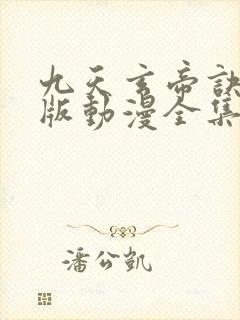 九天玄帝訣
版動漫全集
潘公凱